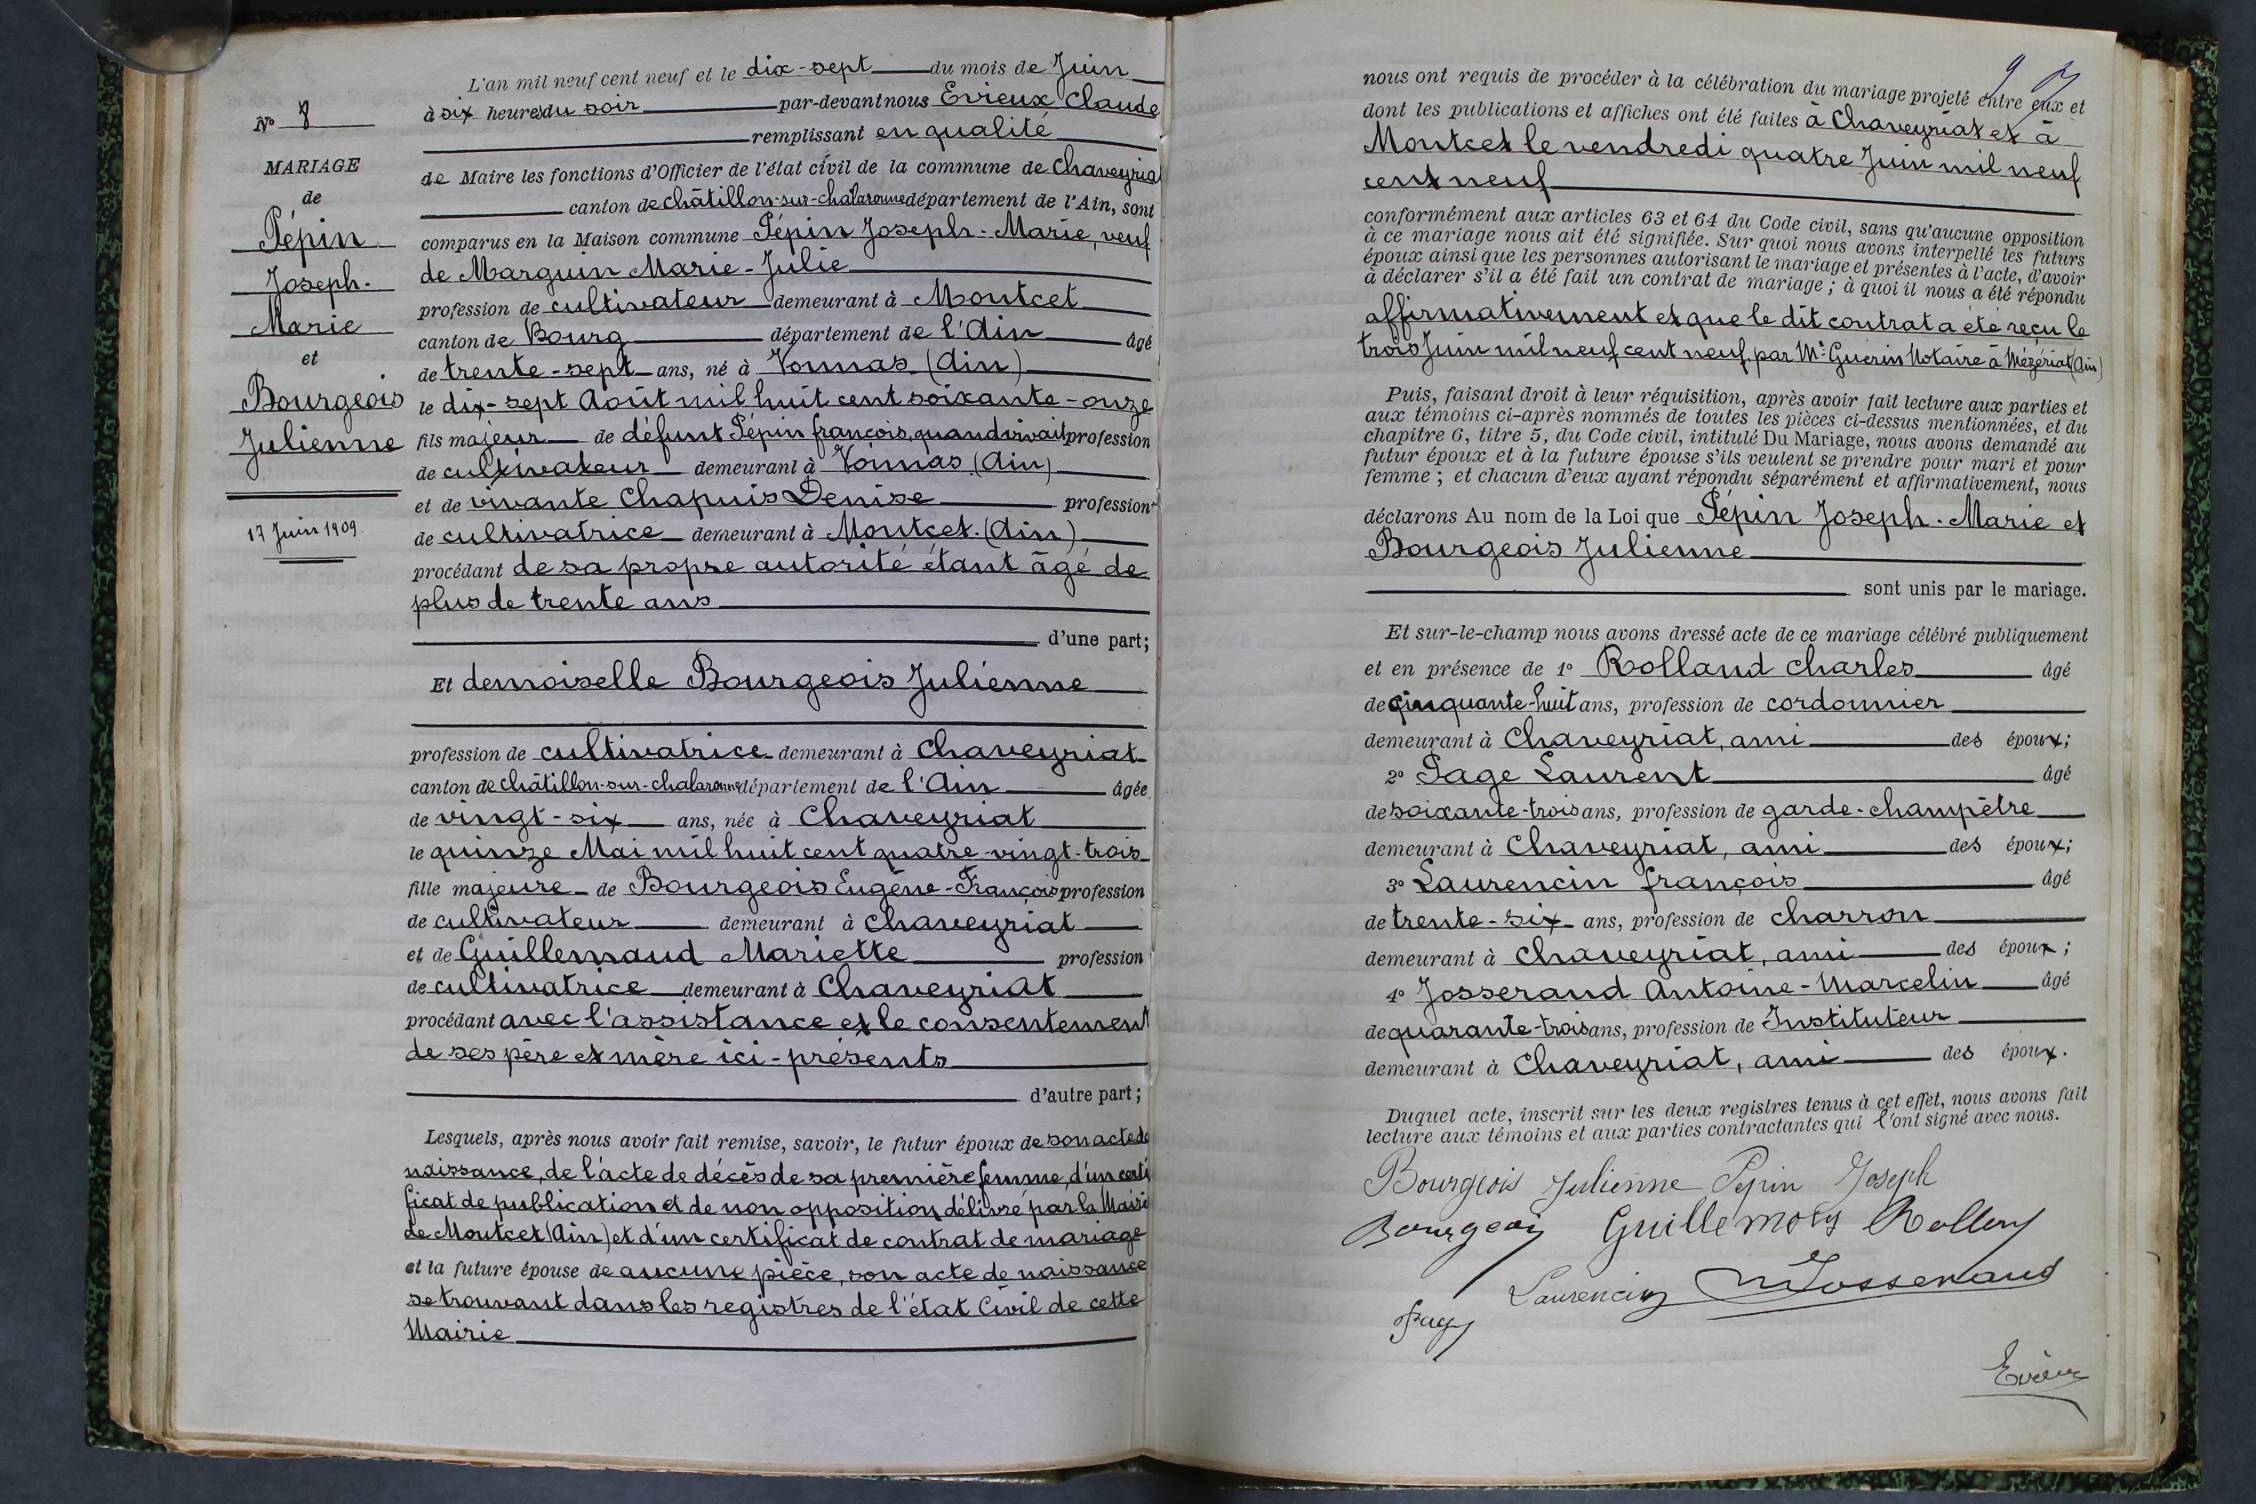 N° 8
MARIAGE
de
Pépin
Joseph-
Marie
et
Bourgeois
Julienne
17 Juin 1909.
L'an mil neuf cent neuf et le dix-sept du mois de Juin
à six heures du soir par-devant nous Evieux Claude
remplissant en qualité
de Maire les fonctions d'Officier de l'état civil de la commune de Chaveyriat
canton de Châtillon-sur-Chalaronne département de l'Ain, sont
comparus en la Maison commune Pépin Joseph-Marie, veuf
de Marguin Marie-Julie
profession de cultivateur demeurant à Montcet
canton de Bourg département de l'Ain âgé
de trente-sept ans, né à Vonnas (Ain)
le dix-sept Août mil huit cent soixante-onze
fils majeur de défunt Pépin françois, quand vivait profession
de cultivateur demeurant à Vonnas (Ain)
et de vivante Chapuis Denise profession
de cultivatrice demeurant à Montcet (Ain)
procédant de sa propre autorité étant âgé de
plus de trente ans
d'une part;
Et demoiselle Bourgeois Julienne
profession de cultivatrice demeurant à Chaveyriat
canton de Châtillon-sur-Chalaronne département de l'Ain âgée
de vingt-six ans, née à Chaveyriat
le quinze Mai mil huit cent quatre-vingt-trois
fille majeure de Bourgeois Eugène-François profession
de cultivateur demeurant à Chaveyriat
et de Guillemaud Mariette profession
de cultivatrice demeurant à Chaveyriat
procédant avec l'assistance et le consentement
de ses père et mère ici-présents
d'autre part;
Lesquels, après nous avoir fait remise, savoir, le futur époux de son acte de
naissance, de l'acte de décès de sa première femme, d'un certi
ficat de publication et de non opposition délivré par la Mairie
de Montcet (Ain) et d'un certificat de contrat de mariage
et la future épouse de aucune pièce, son acte de naissance
se trouvant dans les registres de l'état Civil de cette
Mairie
9
nous ont requis de procéder à la célébration du mariage projeté entre eux et
dont les publications et affiches ont été faites à Chaveyriat et à
Montcet le vendredi quatre Juin mil neuf
cent neuf
conformément aux articles 63 et 64 du Code civil, sans qu'aucune opposition
à ce mariage nous ait été signifiée. Sur quoi nous avons interpellé les futurs
époux ainsi que les personnes autorisant le mariage et présentes à l'acte, d'avoir
à déclarer s'il a été fait un contrat de mariage; à quoi il nous a été répondu
affirmativement et que le dit contrat a été reçu le
trois Juin mil neuf cent neuf par Me Guérin Notaire à Mézériat (Ain)
Puis, faisant droit à leur réquisition, après avoir fait lecture aux parties et
aux témoins ci-après nommés de toutes les pièces ci-dessus mentionnées, et du
chapitre 6, titre 5, du Code civil, intitulé Du Mariage, nous avons demandé au
futur époux et à la future épouse s'ils veulent se prendre pour mari et pour
femme; et chacun d'eux ayant répondu séparément et affirmativement, nous
déclarons Au nom de la Loi que Pépin Joseph-Marie et
Bourgeois Julienne
sont unis par le mariage.
Et sur-le-champ nous avons dressé acte de ce mariage célébré publiquement
et en présence de 1° Rolland Charles âgé
de cinquante-huit ans, profession de cordonnier
demeurant à Chaveyriat, ami des époux;
2° Page Laurent âgé
de soixante-trois ans, profession de garde-champêtre
demeurant à Chaveyriat, ami des époux;
3° Laurencin françois âgé
de trente-six ans, profession de charron
demeurant à Chaveyriat, ami des époux;
4° Josserand Antoine-Marcelin âgé
de quarante-trois ans, profession de Instituteur
demeurant à Chaveyriat, ami des époux.
Duquel acte, inscrit sur les deux registres tenus à cet effet, nous avons fait
lecture aux témoins et aux parties contractantes qui l'ont signé avec nous.
Bourgeois Julienne Pepin Joseph
Bourgeois
Laurencin Josserand
Evieux